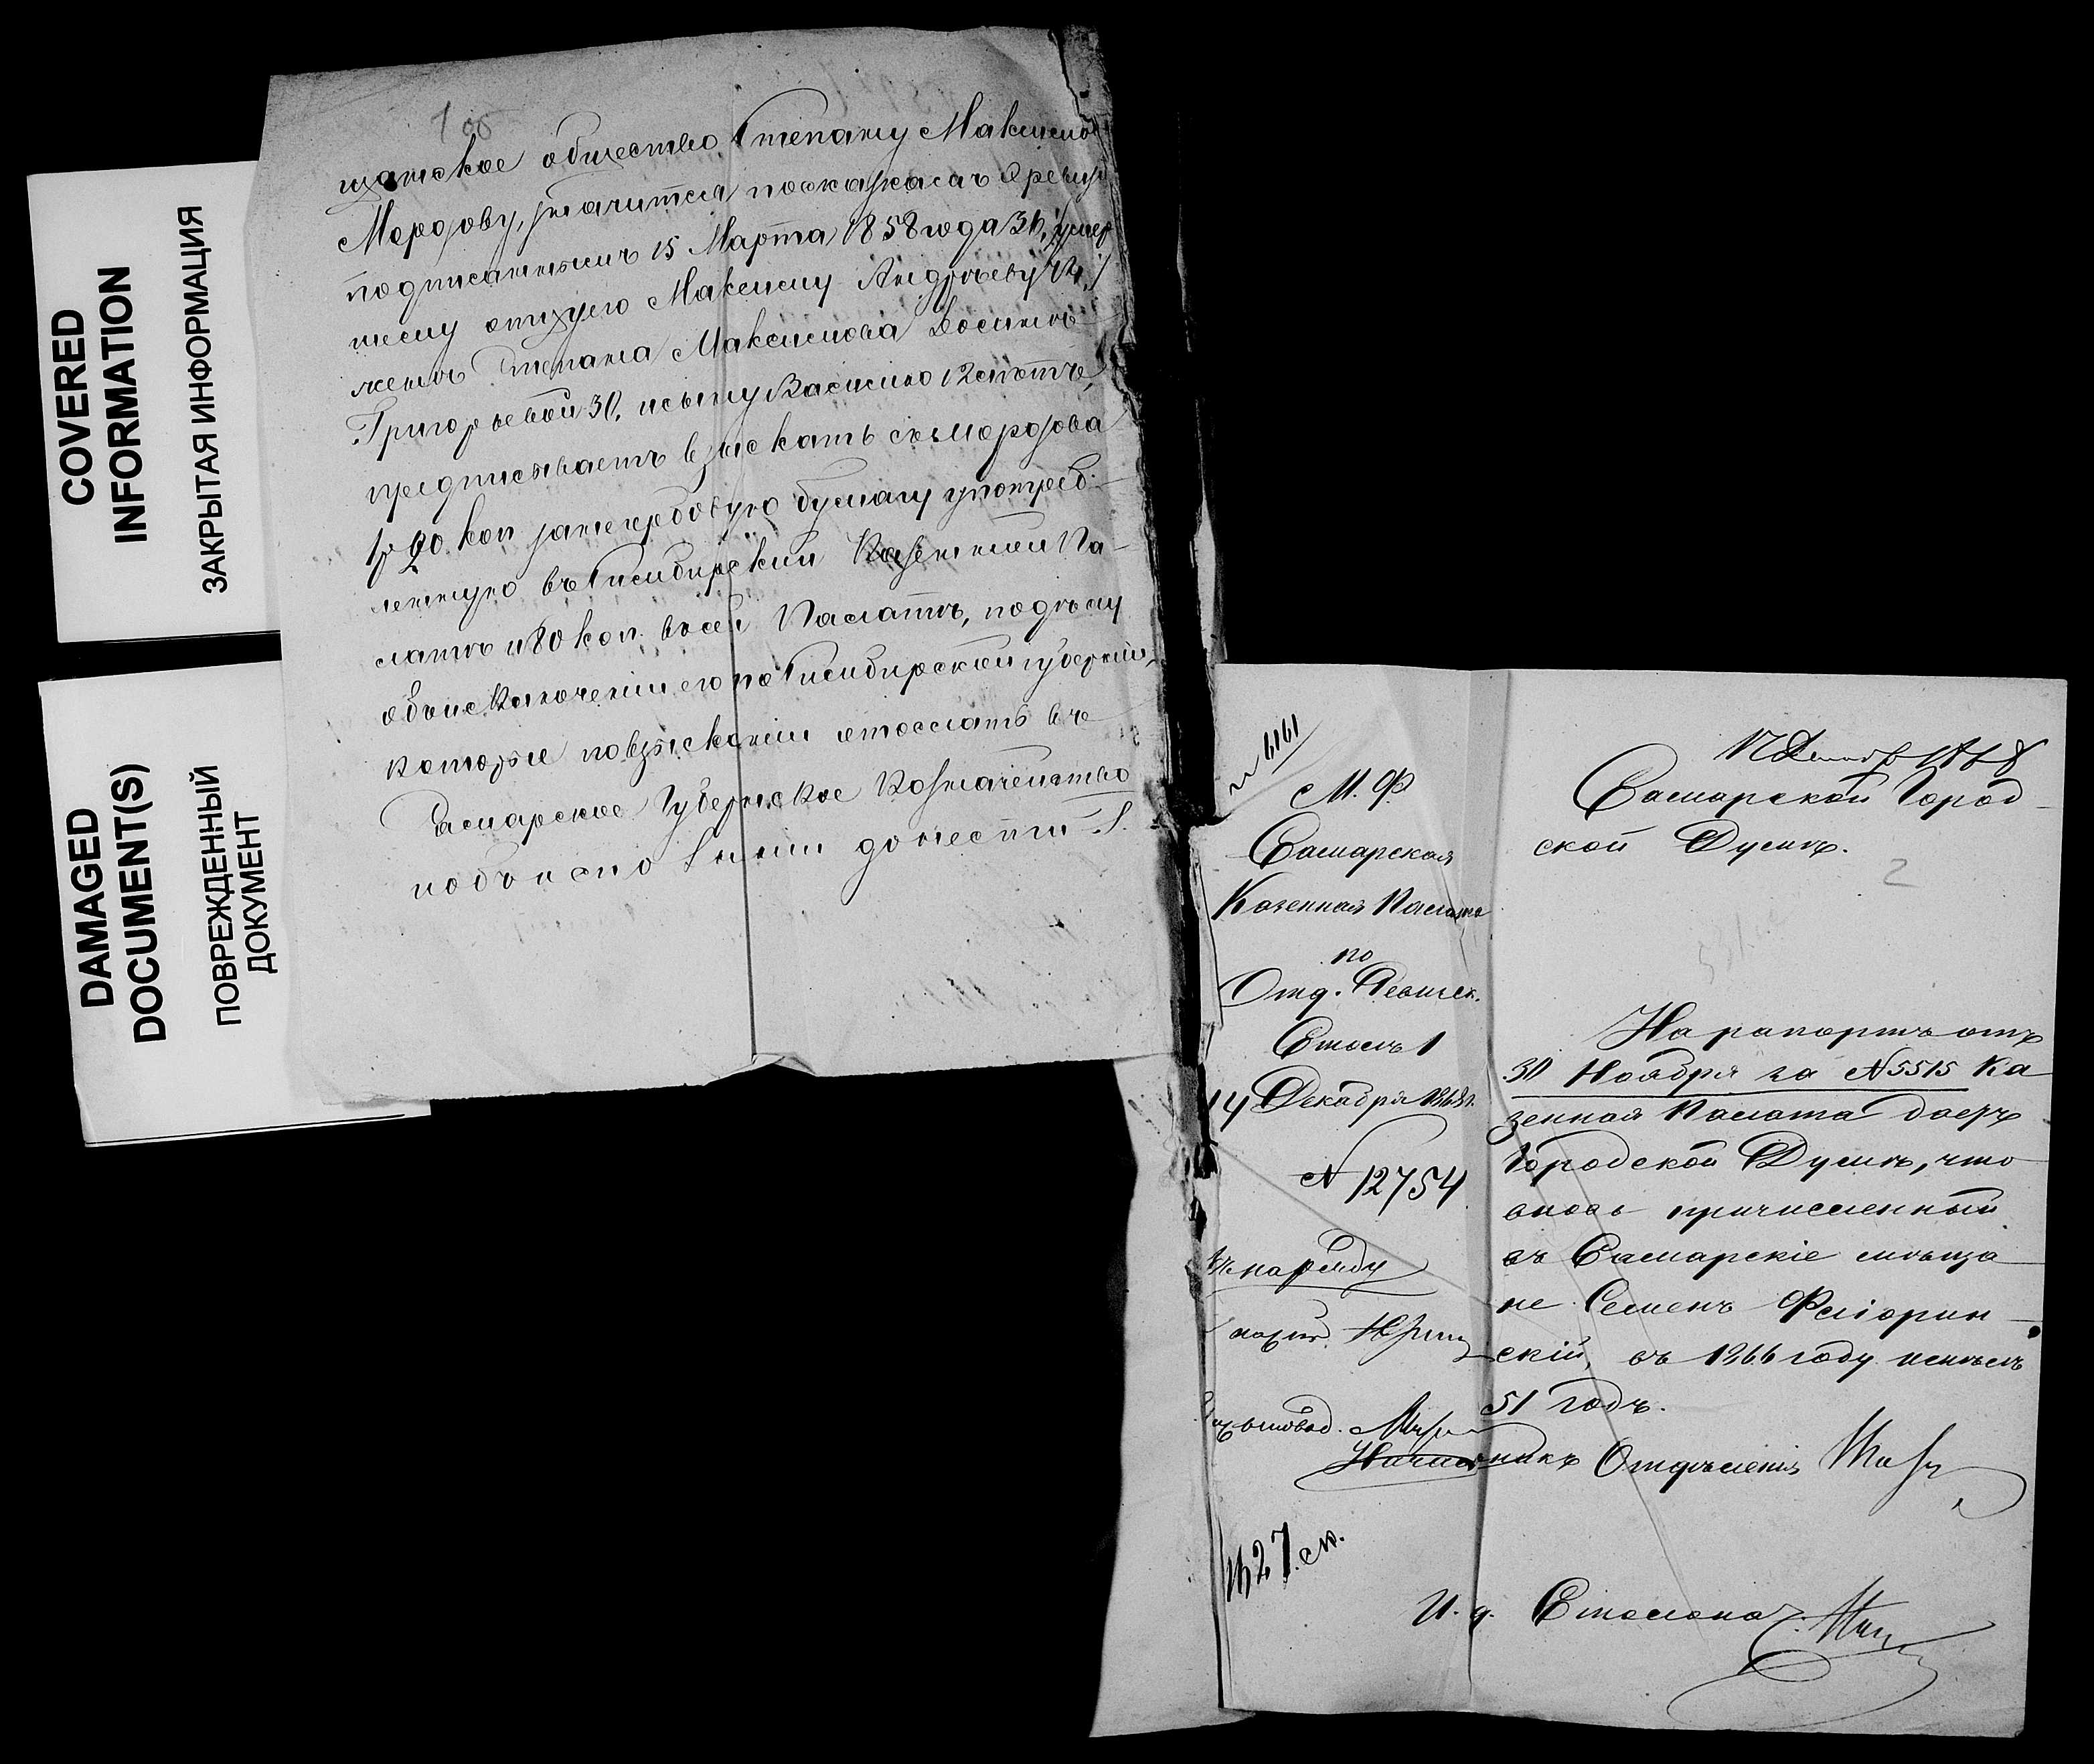 COVERED
INFORMATION
ЗАКРЫТАЯ ИНФОРМАЦИЯ
DAMAGED
DOCUMENT(S)
ПОВРЕЖДЕННЫЙ
ДОКУМЕНТ
1 об
щанское общество Степану Максимов
Морозову, значится по сказкамъ 10 ревизіи
подписаннымъ 15 Марта 1858 года 31, /умер
шему отцу его Максиму Андрѣеву 72,/
женѣ Степана Максимова
Григорьевой 30, и сыну Василию 12 лѣтъ,
предписываетъ взыскать съ Морозова
1 р 20 коп за гербовую бумагу употреб-
ленную въ Симбирской Казенной Па-
латѣ и 80 коп. въ сей Палатѣ, по дѣлу
объ исключеніи его по Симбирской губерніи,
которые по взысканіи и отослать въ
Самарское Губернское Казначейство
и объ исполненіи донести.
№ 6161
М. Ф.
Самарская
Казенная Палата
по
Отд. Ревизск.
Столъ 1
14 Декабря 1868 г.
№ 12754
Къ наряду
1627. м.
17 Декабр 1868
Самарской Город-
ской Думѣ.
2
На рапортъ отъ
30 Ноября за № 5515 Ка
зенная Палата даетъ
Городской Думѣ, что
вновь причисленный
въ Самарскіе мѣща-
не Семенъ Флорин-
скій, въ 1866 году имѣлъ
51 годъ.
Начальникъ Отдѣленія
И. д. Столонач.